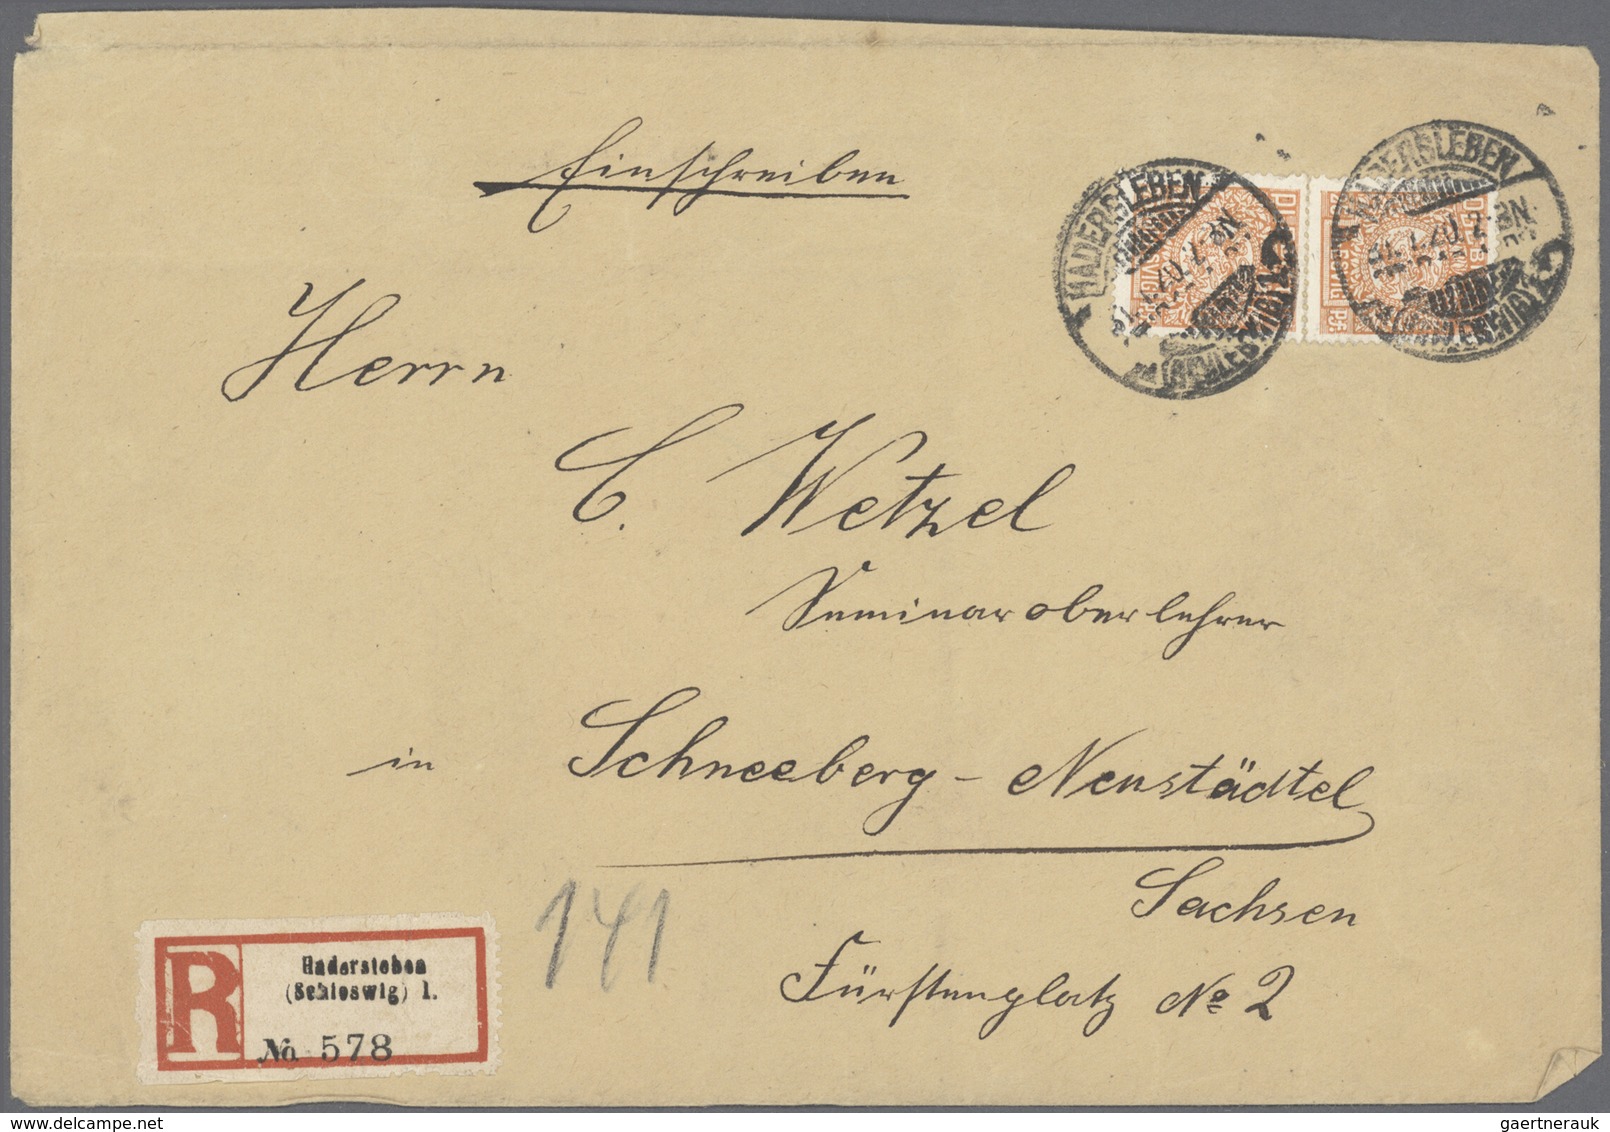 Einschreiben
HADERSLEBEN
HADERSLEBEN
Herrn
C. Wetzel
Seminaroberlehrer
in Schneeberg - Neustädtel
Sachsen
Fürstenplatz No 2
141
R
Hadersleben
(Schleswig) 1.
No 578
gaertnerauk